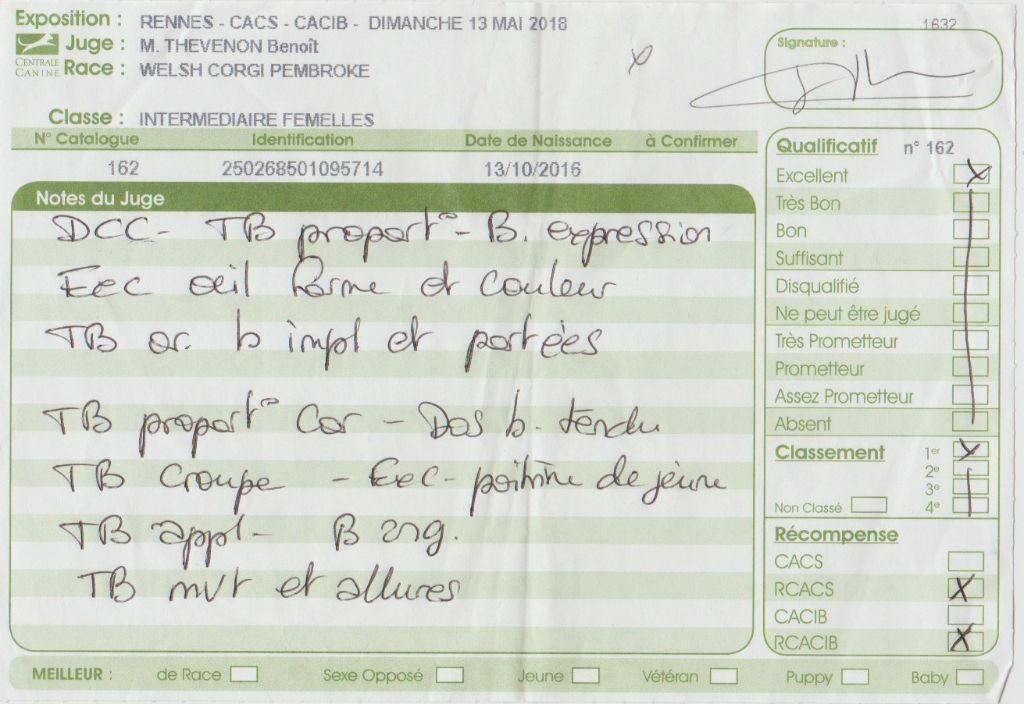 Exposition : RENNES - CACS - CACIB - DIMANCHE 13 MAI 2018
1632
Juge : M. THEVENON Benoît
CENTRALE CANINE
Race : WELSH CORGI PEMBROKE
Signature :
Classe : INTERMEDIAIRE FEMELLES
N° Catalogue Identification Date de Naissance à Confirmer
162 250268501095714 13/10/2016
Notes du Juge
DCC - TB proport° - B. expression
Exc oeil forme et couleur
TB or. b impl et portées
TB proport° Cor - Dos b. tendu
TB Croupe - Exc - poitrine de jeune
TB appl - B ang.
TB mvt et allures
Qualificatif n° 162
Excellent X
Très Bon
Bon
Suffisant
Disqualifié
Ne peut être jugé
Très Prometteur
Prometteur
Assez Prometteur
Absent
Classement 1er X
2e
3e
Non Classé 4e
Récompense
CACS
RCACS X
CACIB
RCACIB X
MEILLEUR : de Race Sexe Opposé Jeune Vétéran Puppy Baby